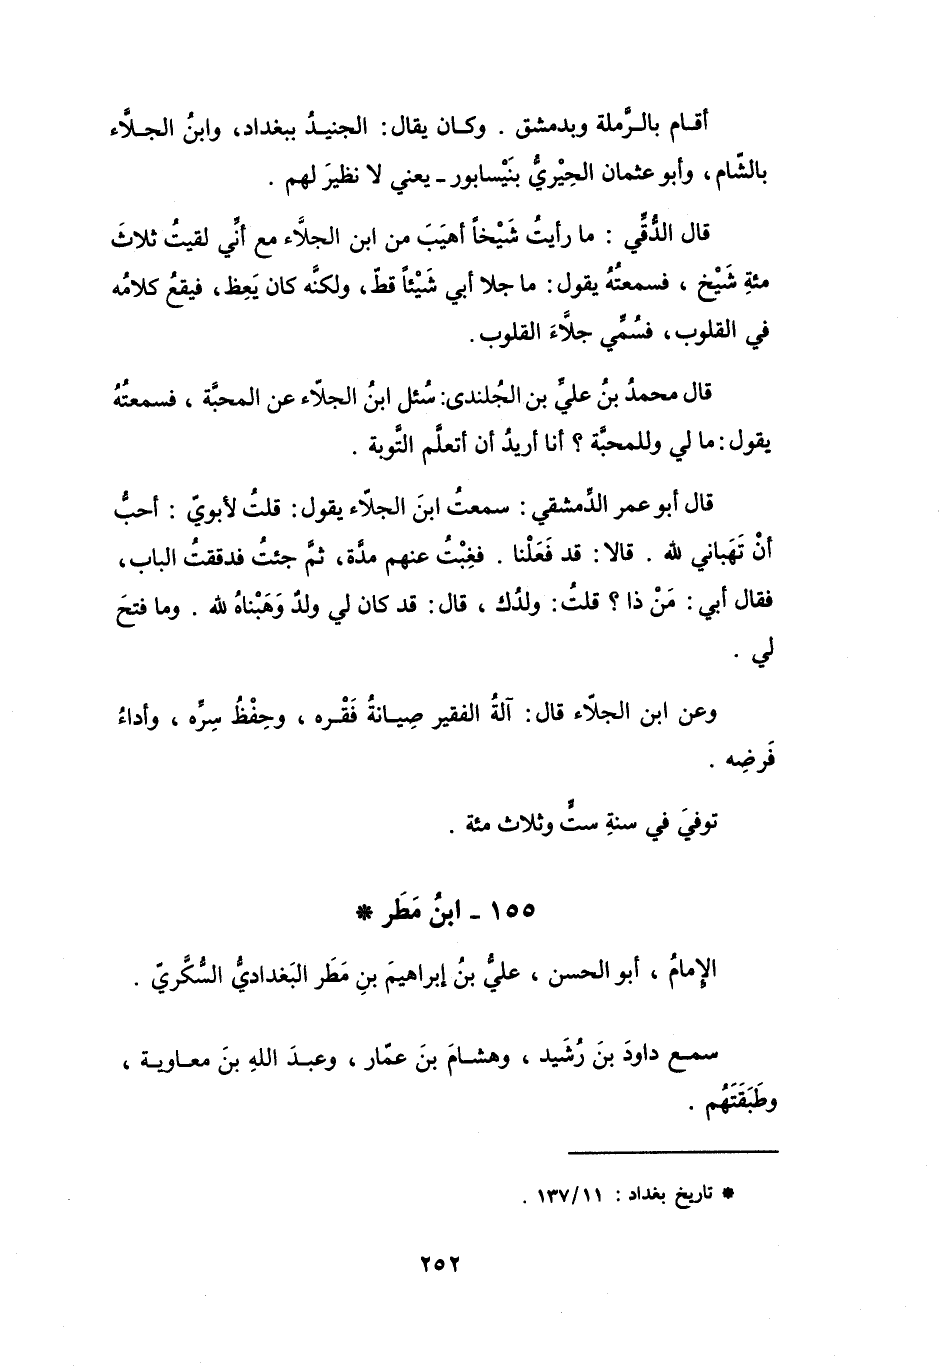 أقـام بالـرَّملة وبدمشق . وكـان يقال: الجنيـدُ ببغداد، وابنُ الجـلَّاء
بالشّام، وأبو عثمان الحِيْريُّ بنَيْسابور ـ يعني لا نظيرَ لهم .
قال الدُّقِّي : ما رأيتُ شَيْخاً أهيَبَ من ابن الجلَّاء مع أنِّي لقيتُ ثلاثَ
مئةِ شَيْخ ، فسمعتُهُ يقول: ما جلا أبي شَيْئاً قطّ، ولكنَّه كان يَعِظ، فيقعُ كلامُه
في القلوب، فسُمِّي جلَّاءَ القلوب.
قال محمدُ بنُ عليِّ بن الجُلندى: سُئل ابنُ الجلّاء عن المحبَّة ، فسمعتُهُ
يقول: ما لي وللمحبَّة ؟ أنا أريدُ أن أتعلَّم التَّوبة .
قال أبو عمر الدِّمشقي : سمعتُ ابنَ الجلّاء يقول: قلتُ لأبويّ : أحبُّ
أنْ تَهَباني لله . قالا: قد فَعَلْنا . فغِبْتُ عنهم مدَّة، ثمَّ جئتُ فدققتُ الباب،
فقال أبي: مَنْ ذا ؟ قلتُ: ولدُك ، قال: قد كان لي ولدٌ وَهَبْناهُ لله . وما فتحَ
لي .
وعن ابن الجلّاء قال: آلةُ الفقير صِيـانةُ فَقْـره ، وحِفْظُ سِرِّه ، وأداءُ
فَرضِه .
توفيَ في سنةِ ستٍّ وثلاث مئة .
١٥٥ ـ ابنُ مَطَر *
الإِمامُ ، أبو الحسن ، عليُّ بنُ إبراهيمَ بنِ مَطَر البَغداديُّ السُّكَّريّ .
سمـع داودَ بنَ رُشَيد ، وهشـامَ بنَ عمّار ، وعبـدَ اللهِ بنَ معـاويـة ،
وطَبَقَتَهُم .
* تاريخ بغداد : ١٣٧/١١ .
٢٥٢